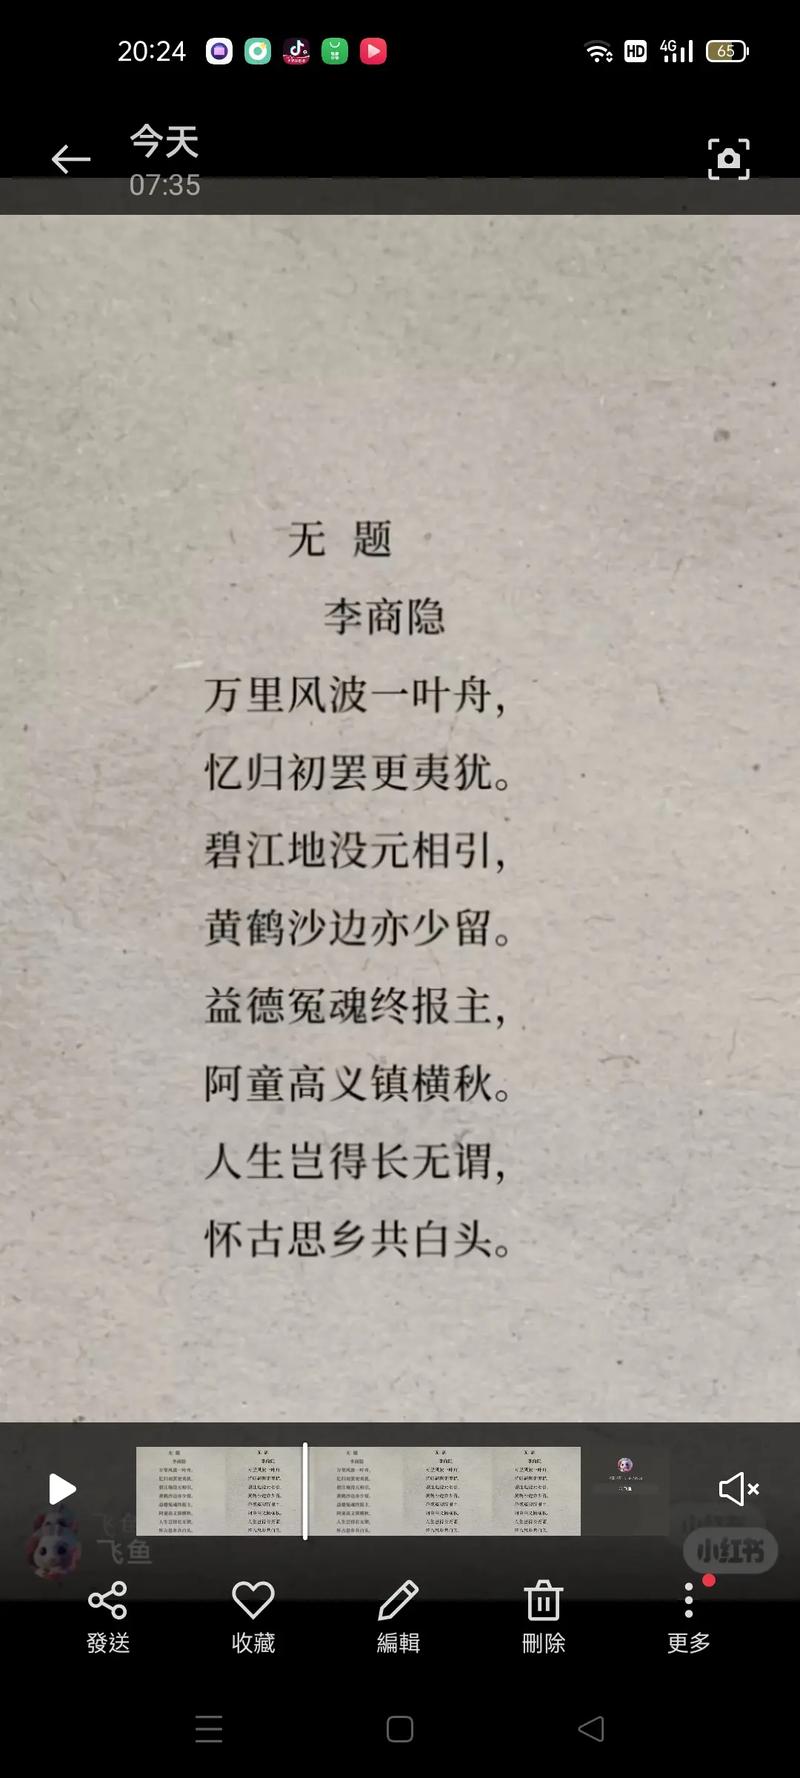 20:24
HD
4G
65
今天
07:35
无 题
李商隐
万里风波一叶舟，
忆归初罢更夷犹。
碧江地没元相引，
黄鹤沙边亦少留。
益德冤魂终报主，
阿童高义镇横秋。
人生岂得长无谓，
怀古思乡共白头。
飞鱼
小红书
發送
收藏
編輯
刪除
更多